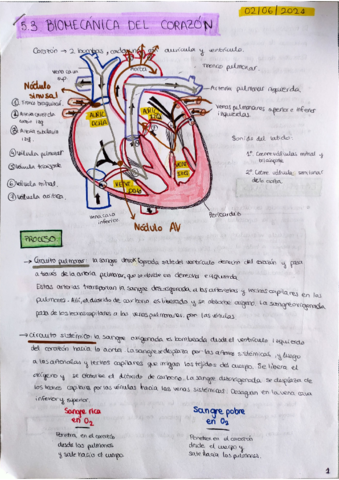 5.3 BIOMECANICA DEL CORAZÓN
02/06/2024
Corazón → 2 bombas, cada una aurícula y ventrículo.
Vena cava sup.
Aorta
tronco pulmonar
Nódulo sinusal
Arteria pulmonar izquierda.
Venas pulmonares superior e inferior izquierdas.
AURI DCHA
AURI IZQ
Válvula pulmonar
Válvula mitral.
Válvula aórtica.
Sonido del latido
1º Cierre válvulas mitral y tricúspide
VENT DCHO
VENT IZQ
vena cava inferior
Nódulo AV
Pericardio
PROCESO:
→ Circuito pulmonar: la sangre desoxigenada sale del ventrículo derecho del corazón y pasa
a través de la arteria pulmonar, que se divide en derecha e izquierda.
Estas arterias transportan la sangre desoxigenada a las arteriolas y vasos capilares en los
pulmones. Allí, el dióxido de carbono es liberado y se absorbe oxígeno. La sangre oxigenada
pasa de los vasos capilares a las venas pulmonares por las vénulas.
→ Circuito sistémico: la sangre oxigenada es bombeada desde el ventrículo izquierdo
del corazón hacia la aorta. La sangre se desplaza por las arterias sistémicas, y luego
a las arteriolas y vasos capilares que irrigan los tejidos del cuerpo. Se libera el
oxígeno y se absorbe el dióxido de carbono. La sangre desoxigenada se desplaza de
los vasos capilares por las vénulas hacia las venas sistémicas. Desaguan en la vena cava
inferior y superior.
Sangre rica en O₂
Sangre pobre en O₂
Penetra en el corazón
desde los pulmones
y sale hacia el cuerpo.
Penetra en el corazón
desde el cuerpo y
sale hacia los pulmones.
1